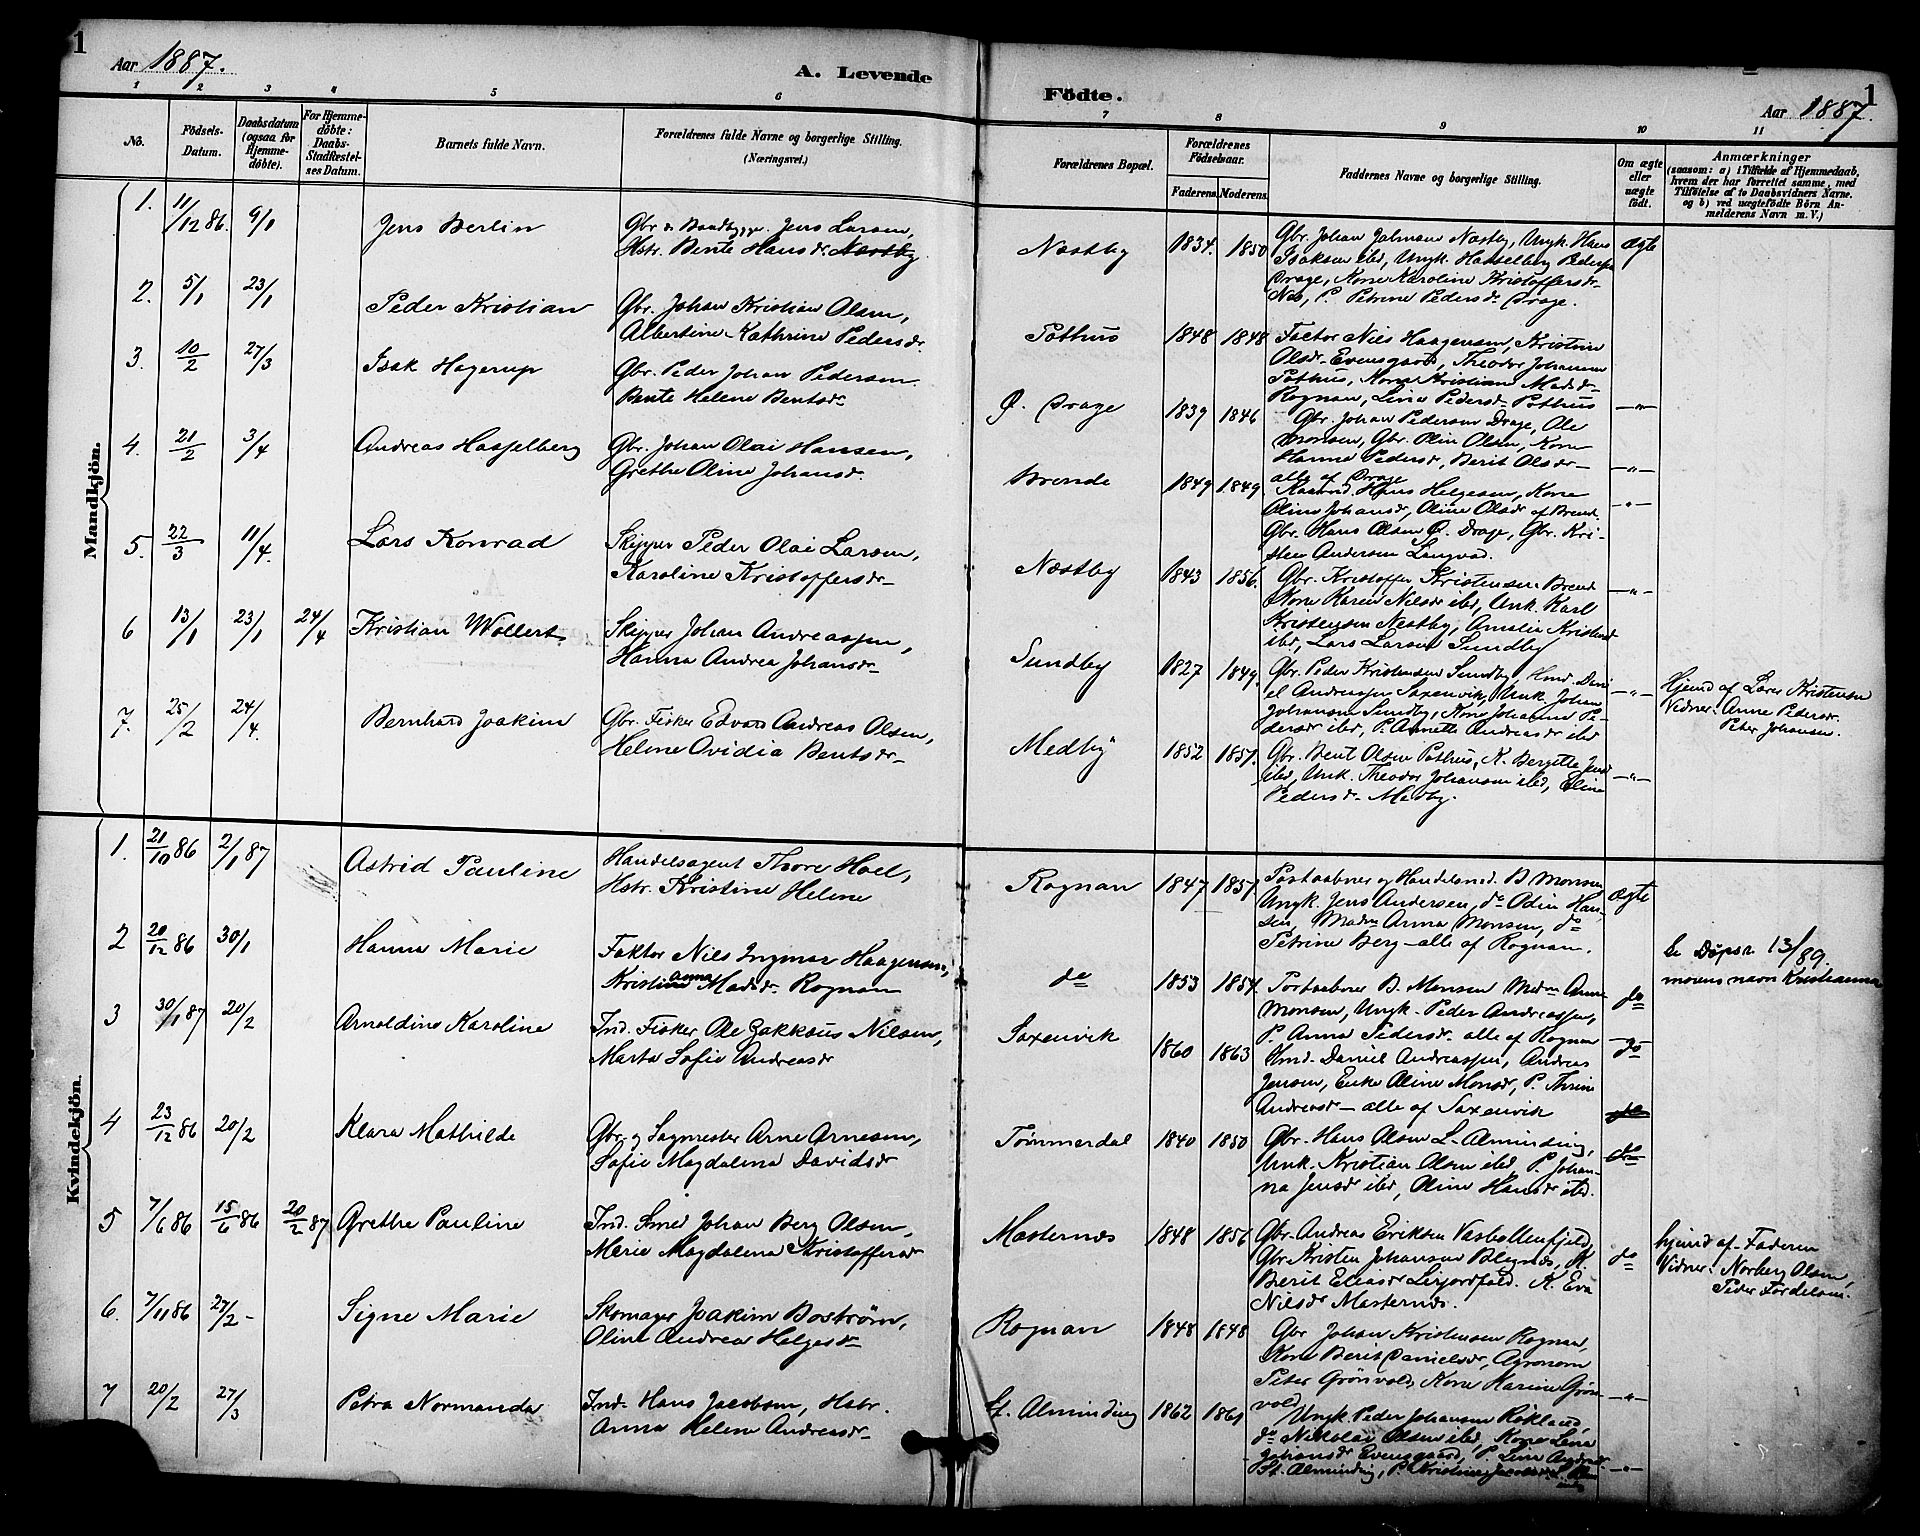 1
Aar 1887.
A. Levende
Födte.
Aar 1887.
1
1 2 3 4 5 6 7 8 9 10 11
No.
Födsels-
Datum.
Daabsdatum
(ogsaa for
Hjemme-
döbte).
For Hjemme-
döbte:
Daabs-
Stadfæstel-
ses Datum.
Barnets fulde Navn.
Forældrenes fulde Navne og borgerlige Stilling.
(Næringsvei.)
Forældrenes Bopæl.
Forældrenes
Födselsaar.
Faderens.
Moderens.
Faddernes Navne og borgerlige Stilling.
Om ægte
eller
uægte
födt.
Anmærkninger
(saasom: a) i Tilfælde af Hjemmedaab,
hvem der har forrettet samme, med
Tilföielse af to Daabsvidners Navne,
og b) ved uægtefödte Börn An-
melderens Navn m. V.)
Mandkjön.
1. 11/12 86. 9/1 Jens Berlin
Gbr & Baadbygger Jens Larsen,
Hstr. Bente Hansdr. Næstby
Næstby 1834. 1850
Gbr. Johan Johnsen Næstby, Ungk. Hans
Isaksen ibd, Ungk. Hasselberg Peders
Drage, Kone Karoline Kristoffersdr
Næs, P. Petrine Pedersdr Drage.
Ægte
2. 5/1 23/1 Peder Kristian
Gbr. Johan Kristian Olsen,
Albertine Kathrine Pedersdr.
Pothus 1848 1848
Factor Niels Haagensen, Kristine
Olsdr Evensgaard, Theodor Johansen
Pothus, Kone Kristian Madsdr
Rognan, Lina Pedersdr Pothus
-"-
3. 10/2 27/3 Isak Hagerup
Gbr. Peder Johan Pedersen
Bente Helene Bentsdr
Ø. Drage 1839 1846
Gbr. Johan Pedersen Drage, Ole
Monsen, Gbr. Olin Olsen, Kone
Hanna Pedersdr, Berit Olsdr
alle af Drage
-"-
4. 21/2 3/4 Andreas Hasselberg
Gbr. Johan Olai Hansen,
Grethe Oline Johansdr.
Brende 1849 1849
Hans Helgesen, Kone
Olina Johansdr, Oline Olsdr af Brend.
Gbr. Hans Olsen Ø. Drage, Gbr. Kri-
sten Andersen Langvad.
-"-
5. 22/3 11/4. Lars Konrad
Skipper Peder Olai Larsen,
Karoline Kristoffersdr
Næstby 1843 1856.
Gbr. Kristoffer Kristensen Brend
Kone Karen Nilsdr ibd, Unk. Karl
Kristensen Nestby, Amalie Kristensd
ibd, Lars Larsen Sundby
-"-
6 13/1 23/1 24/4 Kristian Wollert
Skipper Johan Andreassen,
Hanna Andrea Johansdr
Sundby 1827 1849.
Gbr. Peder Kristensen Sundby, Hmd. Dani-
el Andreassen Saxenvik, Unk. Johan
Johansen Sundby, Kone Johanna Pe-
dersdr ibd, P. Annette Andreasdr ibd
-"-
Hjemd af Lars Kristensen
Vidner: Anne Pedersdr.
Peter Johansen.
7. 25/2 24/4. Bernhard Joakim
Gbr. Fisker Edvard Andreas Olsen,
Helene Ovidia Bentsdr
Medby 1852 1851.
Gbr. Bent Olsen Pothus, K. Bergitte Jensd
ibd, Unk. Theodor Johansen ibd, Elina
Pedersdr Medby.
-"-
Kvindekjön.
1. 21/10 86 2/1 87 Astrid Pauline
Handelsagent Thore Hoel,
Hstr. Kristine Helene
Rognan 1847 1851.
Postaabner og Handelsmd. B Monsen
Ungk. Jens Andersen, do Odin Han-
sen, Madm Anna Monsen, do
Petrine Berg – alle af Rognan.
Ægte
2 20/12 86 30/1 Hanna Marie
Faktor Niels Ingmar Haagensen,
Kristianna Madsdr. Rognan
do 1853 1854.
Postaabner B. Monsen Madm Anna
Monsen, Ungk. Peder Andreassen,
P. Anna Pedersdr. alle af Rognan
do
Se Døpsr. 13/89.
morens navn Kristianna
3 30/1 87 20/2 Arnoldine Karoline
Ind. Fisker Ole Zakkæus Nilsen,
Marta Sofie Andreasdr
Saxenvik 1860 1863
Hmd. Daniel Andreassen, Andreas
Jensen, Enke Oline Monsdr, P. Thrine
Andreasdr – alle af Saxenvik
do
do
4 23/12 86 20/2 Klara Mathilde
Gbr. og Sagmester Arne Arnesen,
Sofie Magdalena Davidsdr
Tømmerdal 1840 1850
Gbr. Hans Olsen L. Alminding,
Unk. Kristian Olsen ibd, P. Johan-
na Jensdr ibd, Oline Hansdr ibd.
do
5 7/6 86 15/6 86 20/2 87 Grethe Pauline
Ind. Smed Johan Berg Olsen,
Marie Magdalena Kristoffersdr
Masternes 1848 1856
Gbr. Andreas Eriksen Vasbottenfjeld,
Gbr. Kristen Johansen Blegnes, K.
Berit Eleasdr Leirjordfald. K. Eva
Nilsdr Masternes.
do
hjemd af Faderen
Vidner: Norberg Olsen,
Peder Fordelsen.
6. 7/11 86 27/2 – Signe Marie
Skomager Joakim Boström,
Oline Andrea Helgesdr
Rognan 1848 1848
Gbr Johan Kristensen Rognan,
Kone Berit Danielsdr, Agronom
Peter Grönvold, Kone Harine Grön-
vold
-"-
7 20/2 27/3 Petra Normanda
Ind. Hans Jacobsen, Hstr.
Anna Helene Andreasdr
St. Alminding 1862 1861
Ungk. Peder Johansen Røkland,
do Nikolai Olsen ibd, Kone Lena
Johansdr Evensgaard, P. Lina Andreasdr
St. Alminding, P. Kristine
-"-